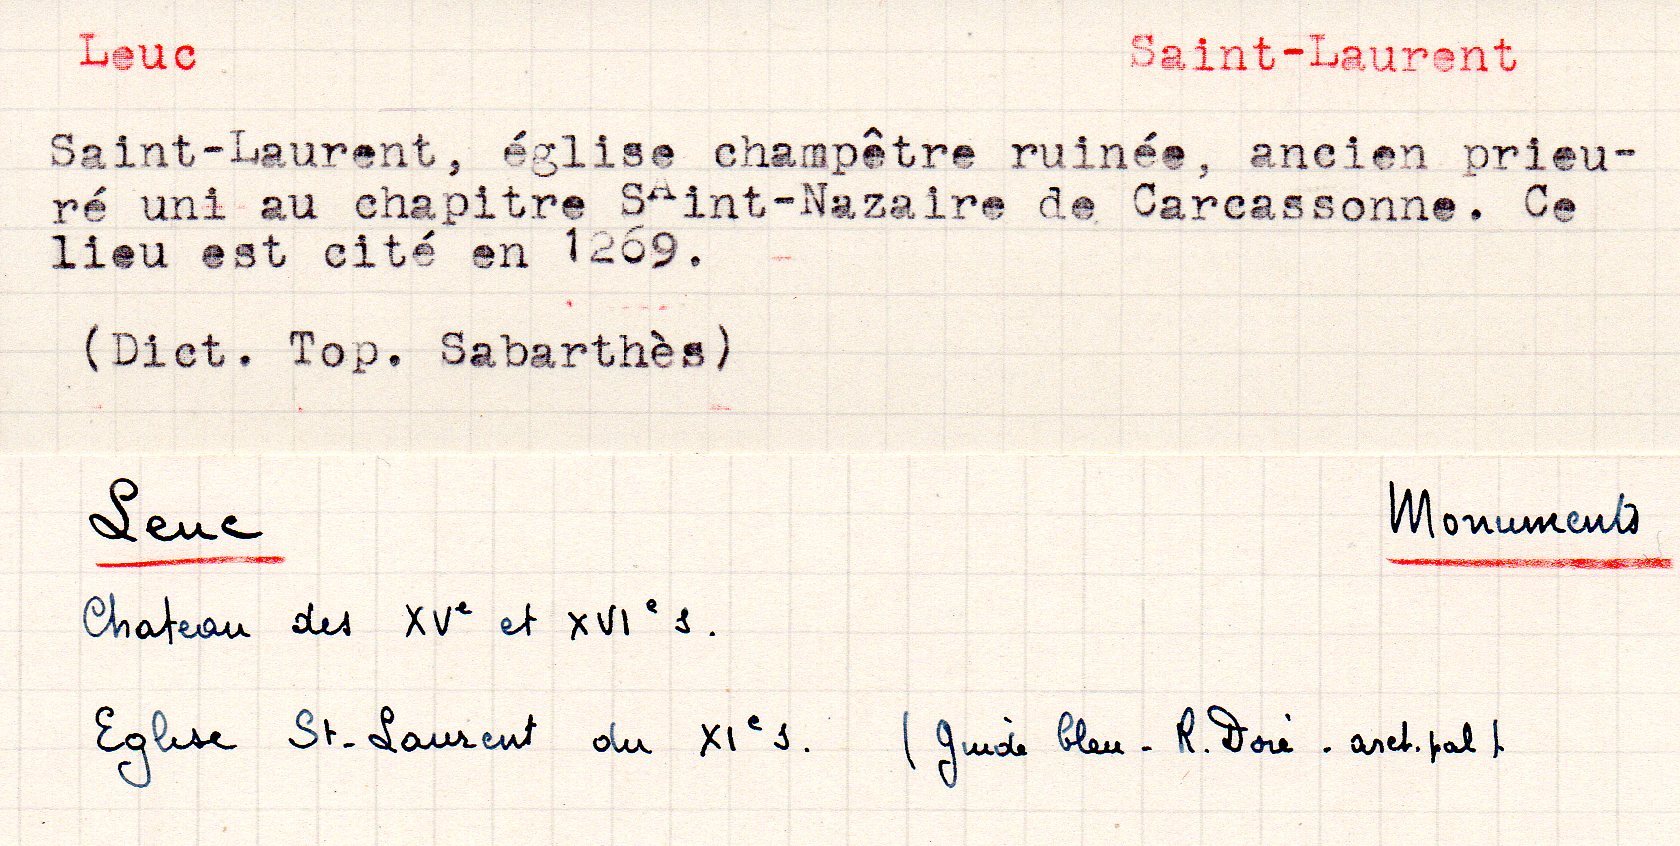 Leuc Saint-Laurent
Saint-Laurent, église champêtre ruinée, ancien prieu-
ré uni au chapitre SAint-Nazaire de Carcassonne. Ce
lieu est cité en 1269.
(Dict. Top. Sabarthès)
Leuc Monuments
Chateau des XVe et XVIe s.
Eglise St-Laurent du XIe s. (Guide bleu - R. Doré . arct. pal)